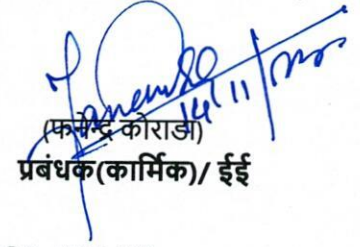 14/11/2025
(फनेन्द्र कोराडा)
प्रबंधक(कार्मिक)/ ईई